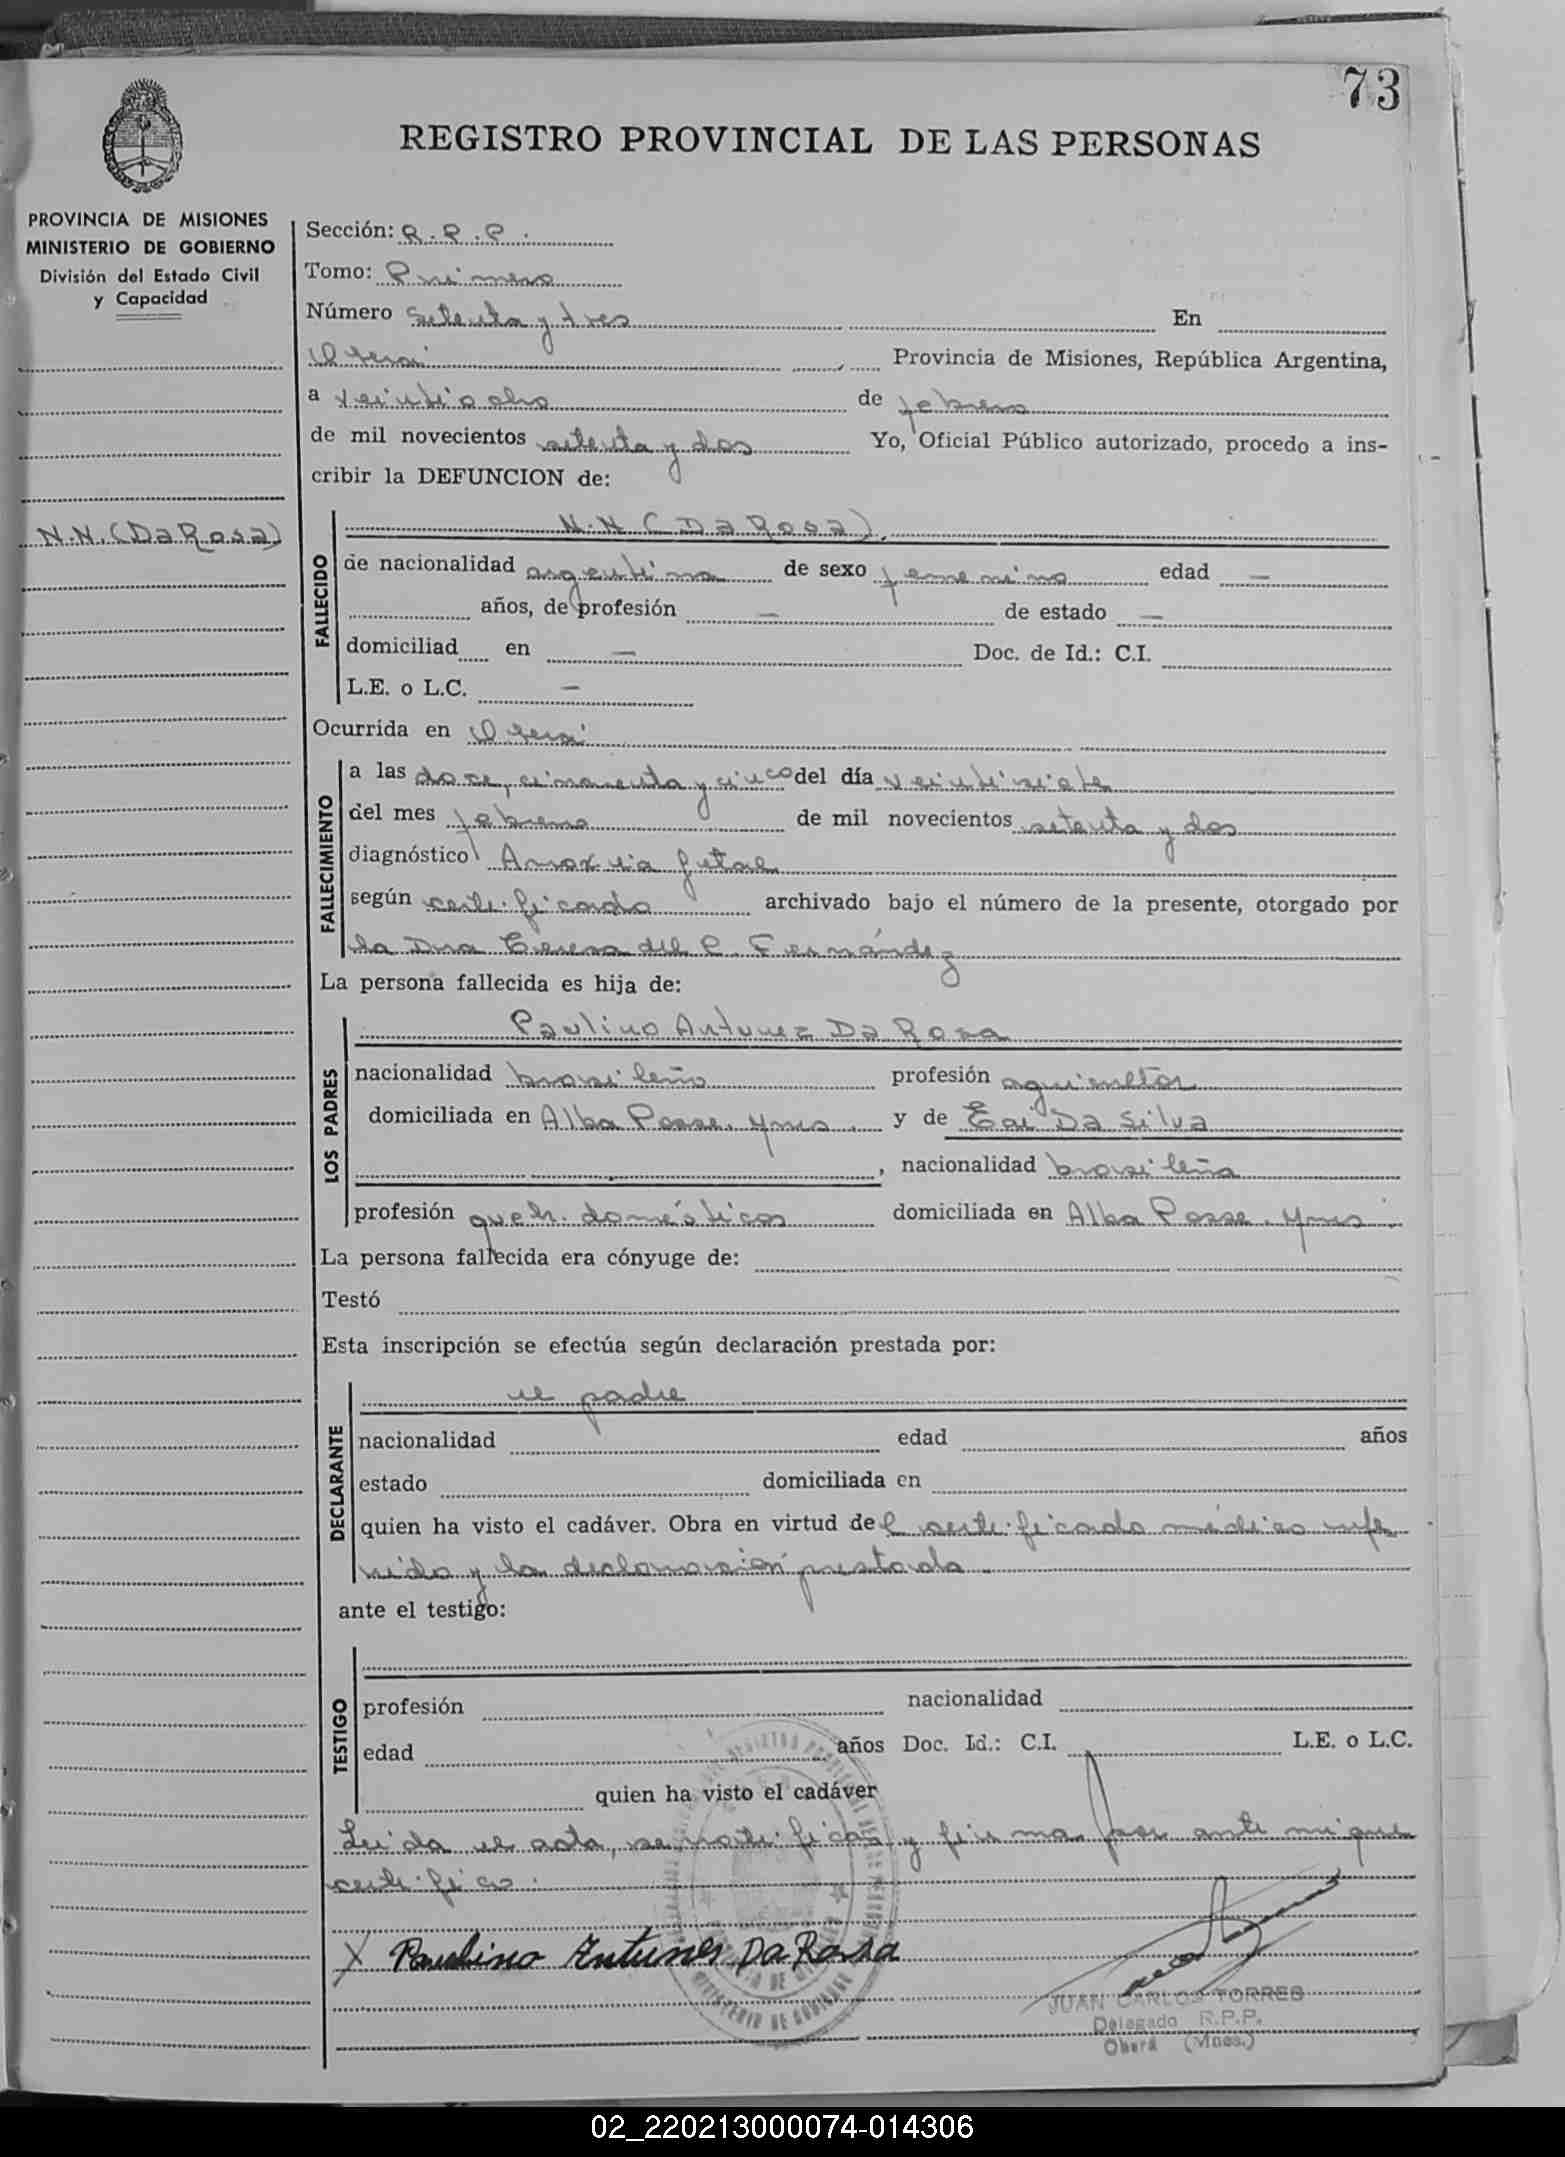 73
REGISTRO PROVINCIAL DE LAS PERSONAS
PROVINCIA DE MISIONES
MINISTERIO DE GOBIERNO
División del Estado Civil
y Capacidad
N.N. (Da Rosa)
Sección: R.P.P.
Tomo: Primero
Número setenta y tres En
Oberá Provincia de Misiones, República Argentina,
a veintiocho de febrero
de mil novecientos setenta y dos Yo, Oficial Público autorizado, procedo a ins-
cribir la DEFUNCION de:
FALLECIDO
N.N (Da Rosa).
de nacionalidad argentina de sexo femenino edad —
años, de profesión — de estado —
domiciliad en — Doc. de Id.: C.I.
L.E. o L.C. —
Ocurrida en Oberá
FALLECIMIENTO
a las doce, cincuenta y cinco del día veintisiete
del mes febrero de mil novecientos setenta y dos
diagnóstico Anoxia fetal
según certificado archivado bajo el número de la presente, otorgado por
la Dra Teresa del C. Fernández
La persona fallecida es hija de:
LOS PADRES
Paulino Antunez Da Rosa
nacionalidad brasileño profesión agricultor
domiciliada en Alba Posse, Mnes. y de Eai Da Silva
, nacionalidad brasileña
profesión queh. domésticos domiciliada en Alba Posse, Mnes.
La persona fallecida era cónyuge de:
Testó
Esta inscripción se efectúa según declaración prestada por:
DECLARANTE
el padre
nacionalidad edad años
estado domiciliada en
quien ha visto el cadáver. Obra en virtud del certificado médico refe
rido y la declaración prestada.
ante el testigo:
TESTIGO
profesión nacionalidad
edad años Doc. Id.: C.I. L.E. o L.C.
quien ha visto el cadáver
Leida el acta, se ratifican y firma por ante mi que
certifico.
X Paulino Antunes Da Rosa
JUAN CARLOS TORRES
Delegado R.P.P.
Oberá (Mnes.)
MINISTERIO DE GOBIERNO
02_220213000074-014306